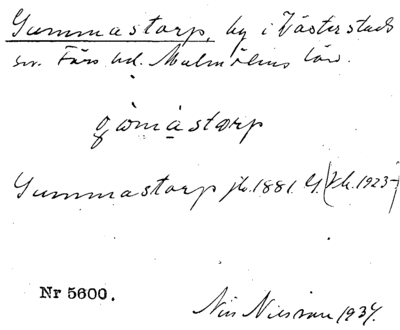 Gummastorp, by i Västerstads
sn. Färs hd. Malmöhus län.
gömastorp
Gummastorp jb. 1881. G. (Kb. 1923-)
Nr 5600.
Nils Nilsson 1934.